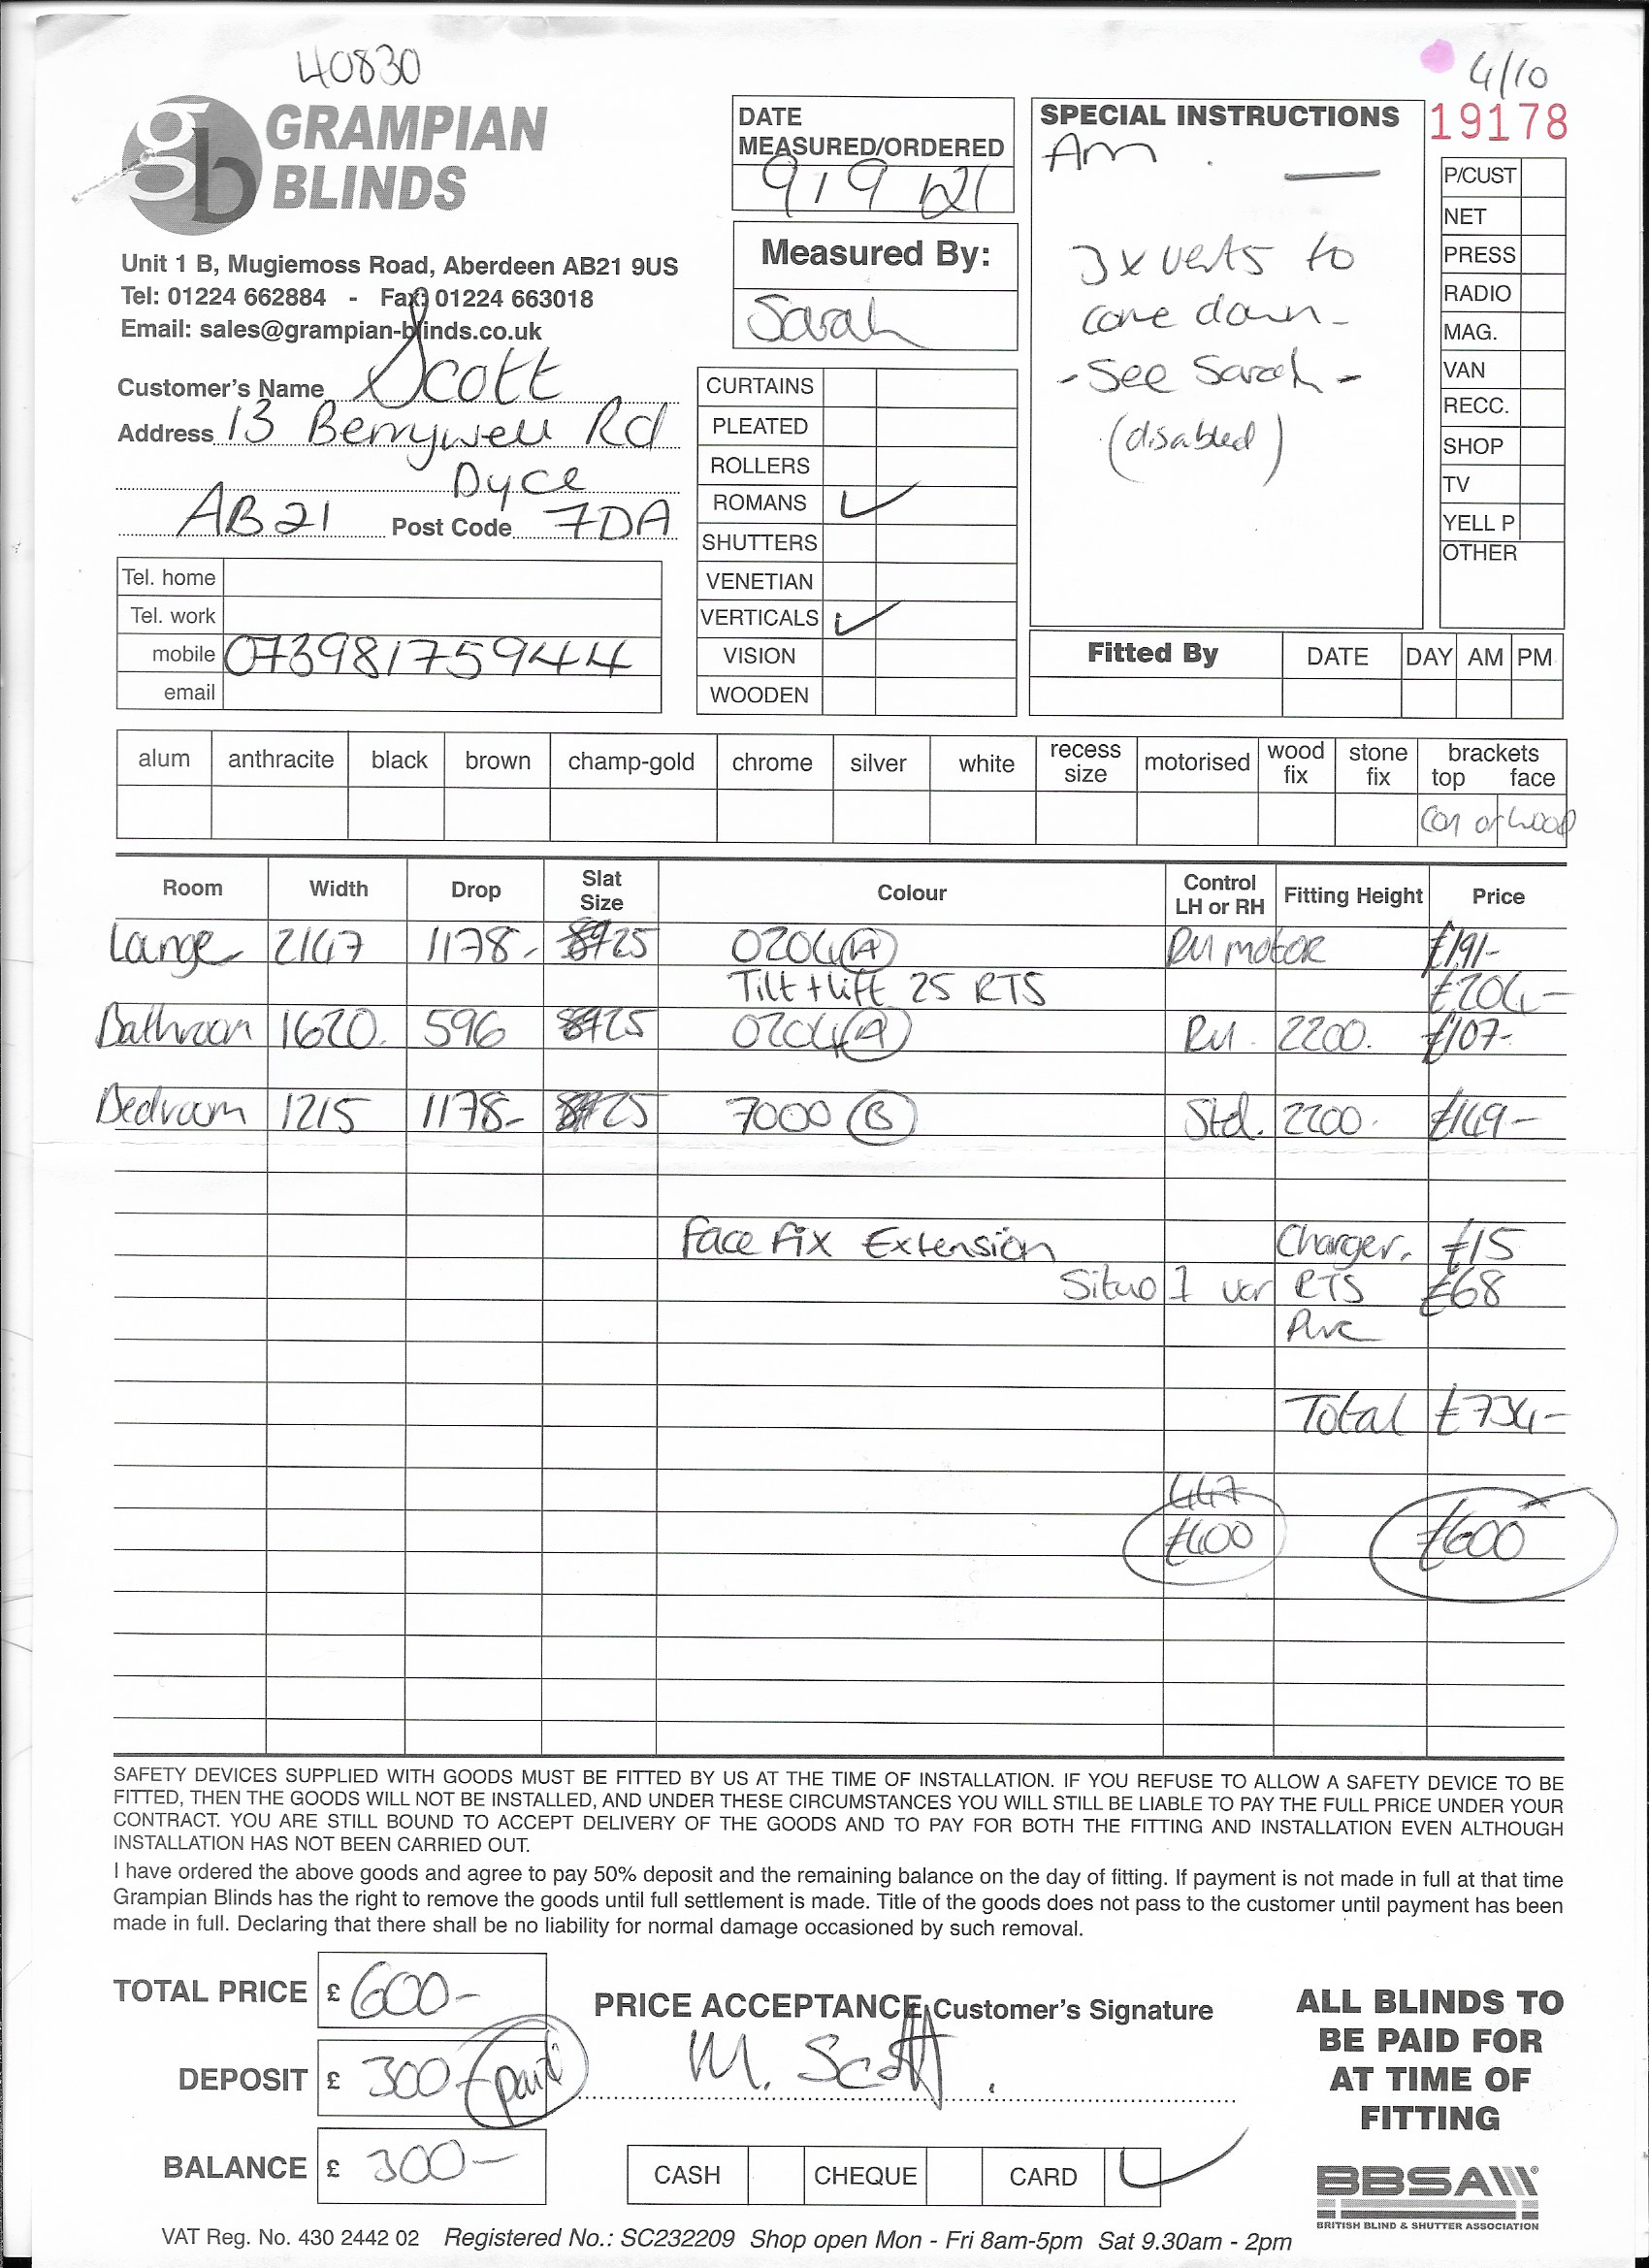 40830
4/10
19178
gb GRAMPIAN
BLINDS
Unit 1 B, Mugiemoss Road, Aberdeen AB21 9US
Tel: 01224 662884 - Fax: 01224 663018
Email: sales@grampian-blinds.co.uk
Customer's Name Scott
Address 13 Berrywell Rd
Dyce
AB21 Post Code 7DA
Tel. home
Tel. work
mobile 07398175944
email
DATE
MEASURED/ORDERED
9/9/21
Measured By:
Sarah
CURTAINS
PLEATED
ROLLERS
ROMANS ✓
SHUTTERS
VENETIAN
VERTICALS ✓
VISION
WOODEN
SPECIAL INSTRUCTIONS
Am
3 x verts to
come down -
- See Sarah -
(disabled)
P/CUST
NET
PRESS
RADIO
MAG.
VAN
RECC.
SHOP
TV
YELL P
OTHER
Fitted By DATE DAY AM PM
alum anthracite black brown champ-gold chrome silver white recess size motorised wood fix stone fix brackets top face
con or wood
Room Width Drop Slat Size Colour Control LH or RH Fitting Height Price
Lounge 2147 1178- 25 0204 (A) RH motor £191-
Tilt + lift 25 RTS £204-
Bathroom 1620. 596 25 0204 (A) RH. 2200. £107-
Bedroom 1215 1178- 25 7000 (B) Std. 2200. £149-
Face Fix Extension Charger. £15
Situo 1 var RTS £68
Pure
Total £734-
447
£400 £600
SAFETY DEVICES SUPPLIED WITH GOODS MUST BE FITTED BY US AT THE TIME OF INSTALLATION. IF YOU REFUSE TO ALLOW A SAFETY DEVICE TO BE
FITTED, THEN THE GOODS WILL NOT BE INSTALLED, AND UNDER THESE CIRCUMSTANCES YOU WILL STILL BE LIABLE TO PAY THE FULL PRICE UNDER YOUR
CONTRACT. YOU ARE STILL BOUND TO ACCEPT DELIVERY OF THE GOODS AND TO PAY FOR BOTH THE FITTING AND INSTALLATION EVEN ALTHOUGH
INSTALLATION HAS NOT BEEN CARRIED OUT.
I have ordered the above goods and agree to pay 50% deposit and the remaining balance on the day of fitting. If payment is not made in full at that time
Grampian Blinds has the right to remove the goods until full settlement is made. Title of the goods does not pass to the customer until payment has been
made in full. Declaring that there shall be no liability for normal damage occasioned by such removal.
TOTAL PRICE £ 600-
DEPOSIT £ 300- (paid)
BALANCE £ 300-
PRICE ACCEPTANCE Customer's Signature
M. Scott.
CASH CHEQUE CARD ✓
ALL BLINDS TO
BE PAID FOR
AT TIME OF
FITTING
BBSA
BRITISH BLIND & SHUTTER ASSOCIATION
VAT Reg. No. 430 2442 02 Registered No.: SC232209 Shop open Mon - Fri 8am-5pm Sat 9.30am - 2pm